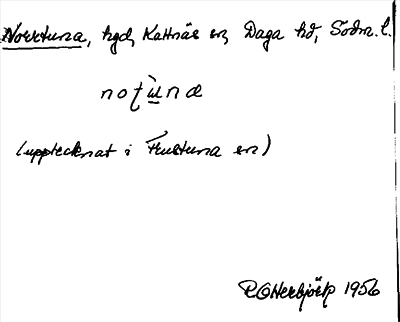 Norrtuna, hgd, Kattnäs sn, Daga hd, Södm. l.
notùnæ
(upptecknat i Frustuna sn)
1956